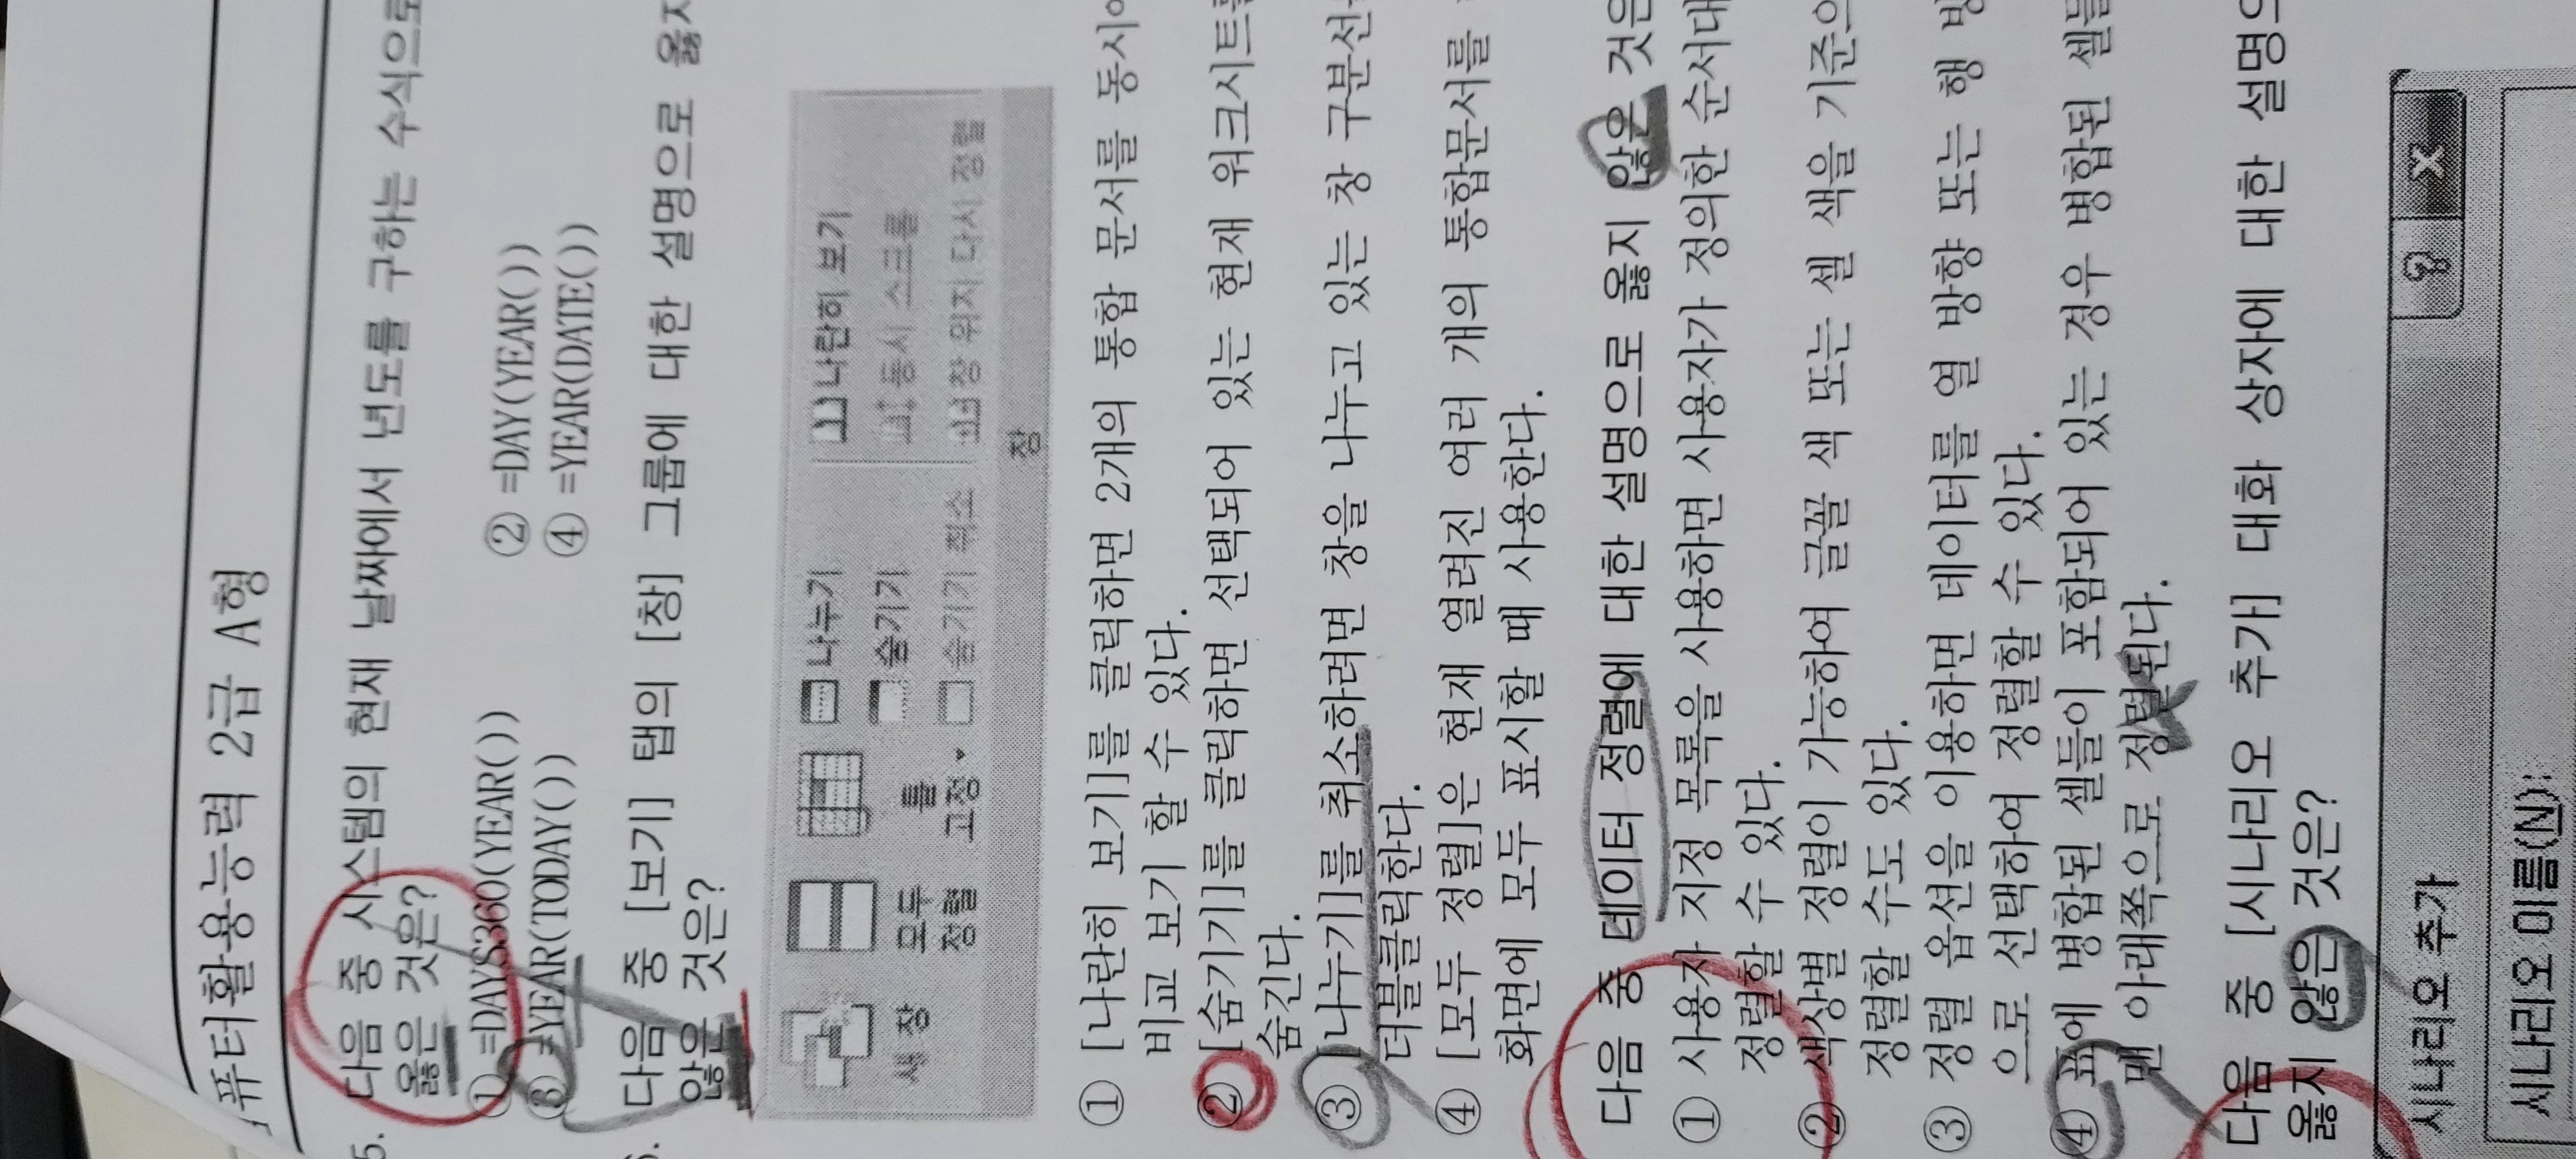 퓨터활용능력 2급 A형
5. 다음 중 시스템의 현재 날짜에서 년도를 구하는 수식으로
옳은 것은?
① =DAYS360(YEAR())
② =DAY(YEAR())
③ =YEAR(TODAY())
④ =YEAR(DATE())
6. 다음 중 [보기] 탭의 [창] 그룹에 대한 설명으로 옳지
않은 것은?
새 창
모두 정렬
틀 고정
나누기
숨기기
숨기기 취소
나란히 보기
동시 스크롤
창 위치 다시 정렬
창
① [나란히 보기]를 클릭하면 2개의 통합 문서를 동시에
비교 보기 할 수 있다.
② [숨기기]를 클릭하면 선택되어 있는 현재 워크시트를
숨긴다.
③ [나누기]를 취소하려면 창을 나누고 있는 창 구분선을
더블클릭한다.
④ [모두 정렬]은 현재 열려진 여러 개의 통합문서를
화면에 모두 표시할 때 사용한다.
다음 중 데이터 정렬에 대한 설명으로 옳지 않은 것은
① 사용자 지정 목록을 사용하면 사용자가 정의한 순서대
정렬할 수 있다.
② 색상별 정렬이 가능하여 글꼴 색 또는 셀 색을 기준으
정렬할 수도 있다.
③ 정렬 옵션을 이용하면 데이터를 열 방향 또는 행 방
으로 선택하여 정렬할 수 있다.
④ 표에 병합된 셀들이 포함되어 있는 경우 병합된 셀들
맨 아래쪽으로 정렬된다.
다음 중 [시나리오 추가] 대화 상자에 대한 설명으
옳지 않은 것은?
시나리오 추가
시나리오 이름(N):